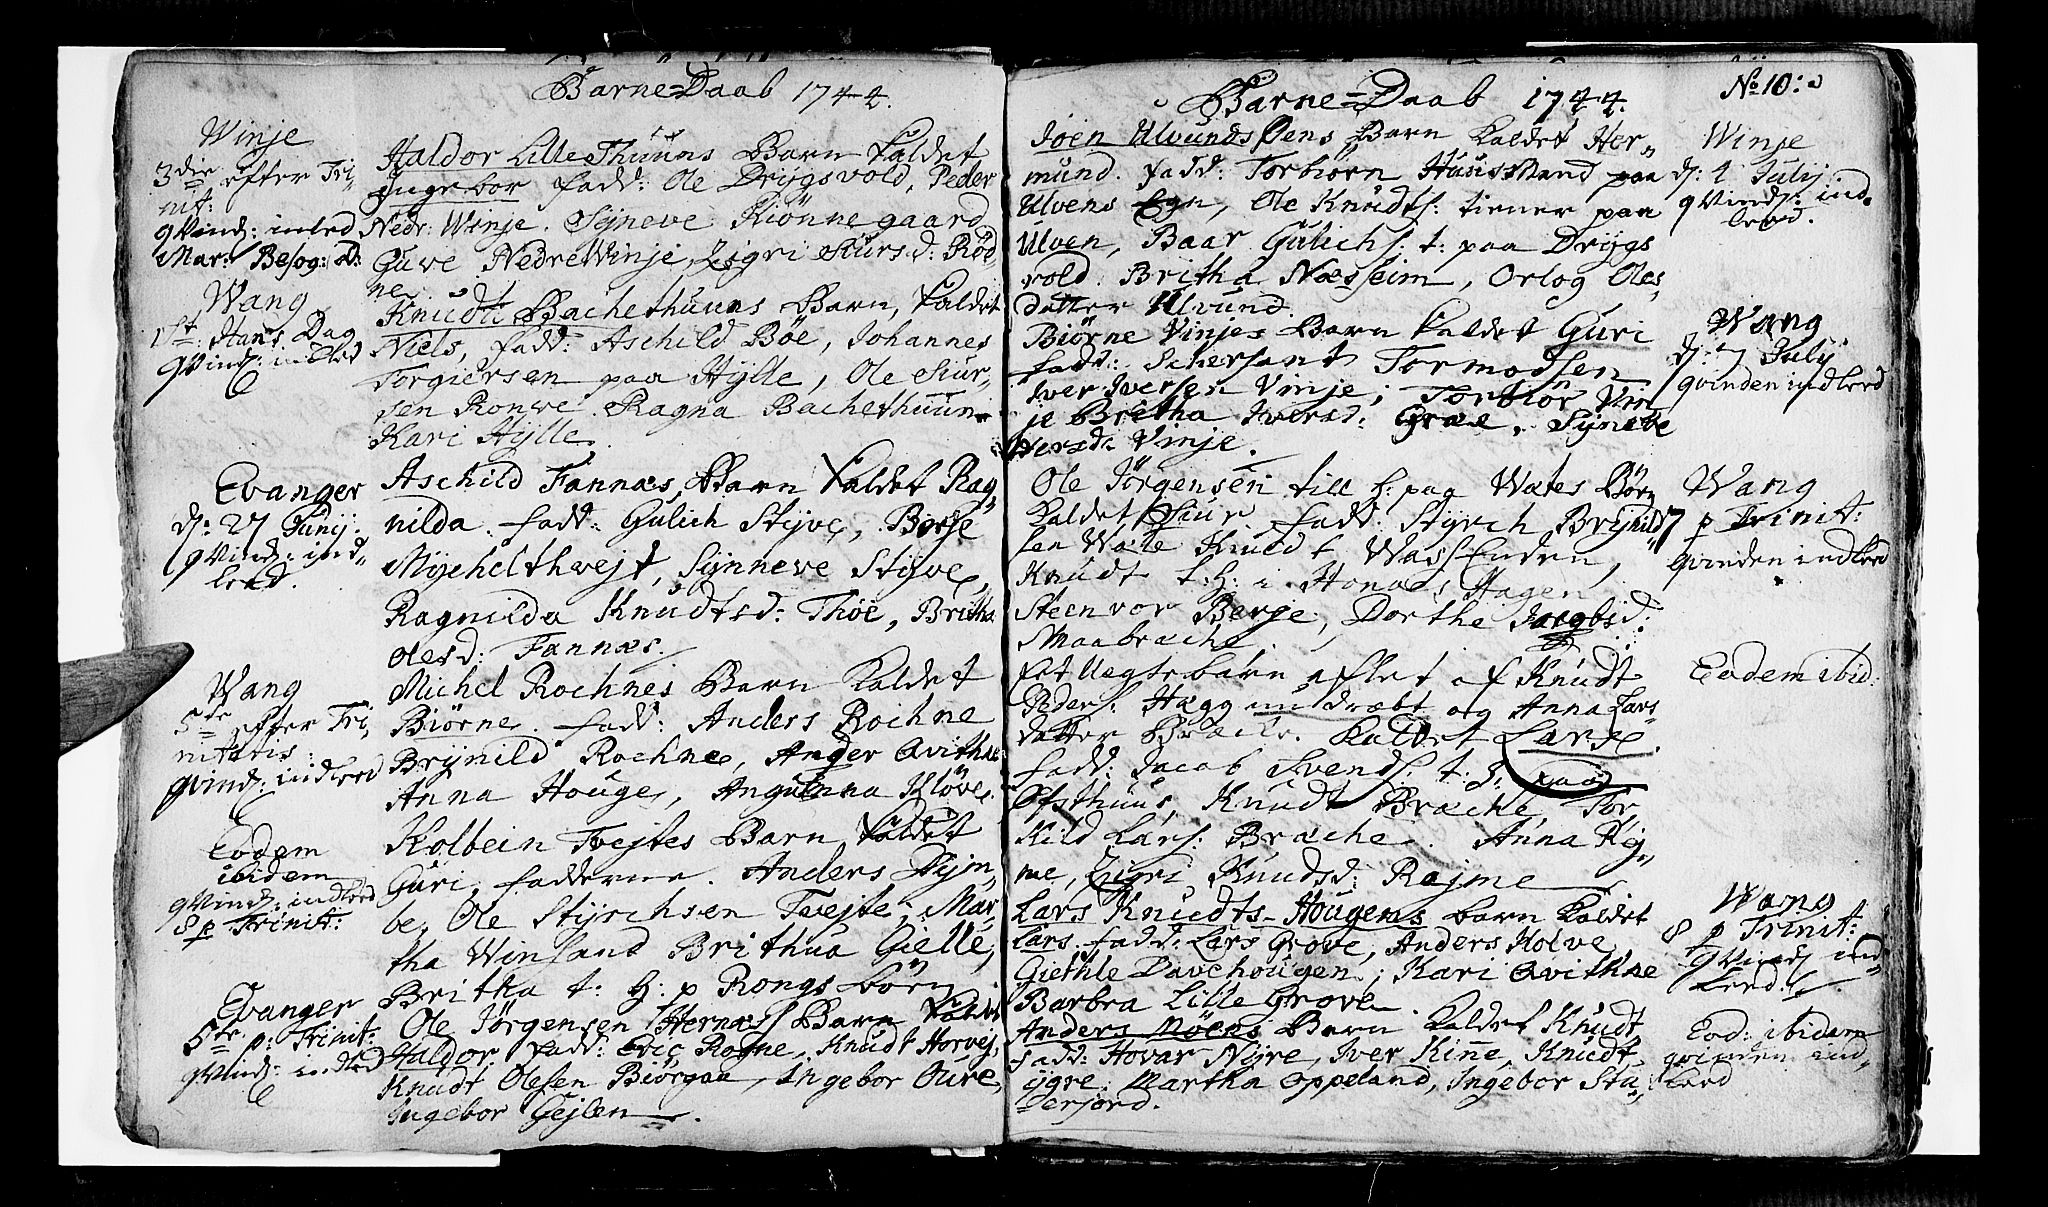 Barne=Daab 1744.
Winje
3die efter Tri-
nit:
qvind: inled
Mar: Besog: D:
Haldor Lille Thuuns Barn Kaldet
Ingebor fadd: Ole Drygsvold, Peder
Nedr: Winje. Synneve Kiønne gaard
Guve Nedre Winje, Sigri Siursd: Rød-
ne
Wang
1st: Hans Dag
qvind: indled
Knudt Bachethuuns Barn, Kaldet
Niels, fadd: Aschild Böe, Johannes
Torgiersen paa Hylle, Ole Siur-
sen Ronve. Ragna Bachethuun
Kari Hylle.
Evanger
d: 27 Junij
qvind: ind-
leed.
Aschild Fannæs Barn Kaldet Rag-
nilda. fadd: Gulich Styve, Börje
Mychelthvejt, Synneve Styve,
Ragnilda Knudtsd: Thöe, Britha
Olesd: Fannæs.
Wang
5te efter Tri
nitatis:
qvind: indleed
Michel Rochnes Barn Kaldet
Biörne. fadd: Anders Rochne
Brynild Rochne, Ander Qvithne
Anna Houge, Angunna Klöve.
Eodem
ibidem
qvind: indleed
8 p Trinit:
Kolbein Tvejtes Barn Kaldet
Guri, fadderne. Anders Rijm-
be, Ole Styrchsen Tvejte, Mar-
tha Winsand Brithua Gielle,
Britha t: h: p Rongs börn
Evanger
5te p: Trinit:
qvind: indled
Ole Jörgensen Hernæs Barn Kaldet
Haldor. fadd: Eric Rogne, Knudt Horvej,
Knudt Olesen Biörgaa, Ingebor Oure,
Ingebor Gejlen.
Barne=Daab 1744.
No 10:
Joen Ulvunds Øens Barn Kaldet Her-
mund. fadd: Torbiörn Huussmand paa
Ulvens Egn, Ole Knudts: tiener paa
Ulven, Baar Gulichs: t: paa Drygs
vold. Britha Næsseim, Orlog Oles-
datter Ulvund.
Winje
d: 1 July
qvind: ind-
leed.
Biörne Vinjes Barn Kaldet Guri
fadd: Schersant Tormodsen
Iver Iversen Vinje; Torbiör Vin
je Britha Iversd: Græe, Syneve
Iversd: Vinje.
Wang
d: 7 July
qvinden indleed
Ole Jörgensen till h: paa Wæles Börn
Kaldet Siur. fadd: Styrch Brynild
sen Wæle Knudt WassEnden,
Knudt t: h: i Honæs Hagen
Steenvor Berje, Dorthe Jacobsd:
Maabræche.
Wang
7 p Trinit:
qvinden indleed
Eet Uegte barn aflet af Knudt
Peders: Hægg undræbt og Anna Lars-
datter Bræche. Kaldet Larse.
fadd: Jacob Svends: t: h: paa
Øfsthuus, Knudt Bræche, Tor
Kild Lars: Bræche. Anna Rej-
me, Zigri Knudsd: Rejme
Eodem ibid:
Lars Knudts-Hougens barn Kaldet
Lars. fadd: Lars Grove, Anders Kolve,
Giethle Davchougen; Kari Qvithne
Barbra Lille Grove.
Wang
8 p Trinit:
qvind ind-
leed.
Anders Möens Barn Kaldet Knudt
fadd: Hovar Nyre, Iver Kinne, Knudt
ygre. Martha Oppeland, Ingebor Sta-
derjord.
Eod: ibidem
qvinden ind-
leed